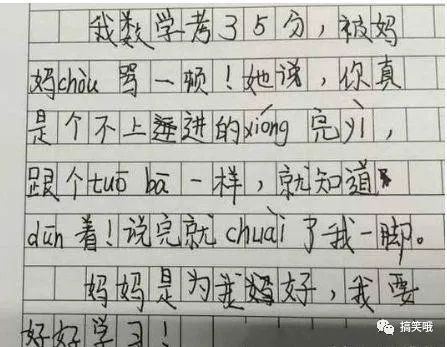 我数学考35分，被妈
妈chòu 骂一顿！她说，你真
是个不上进的xióng 完yì，
跟个tuō bā 一样，就知道
dūn 着！说完就 chuài 了我一脚。
妈妈是为我好，我要
好好学习！
搞笑哦